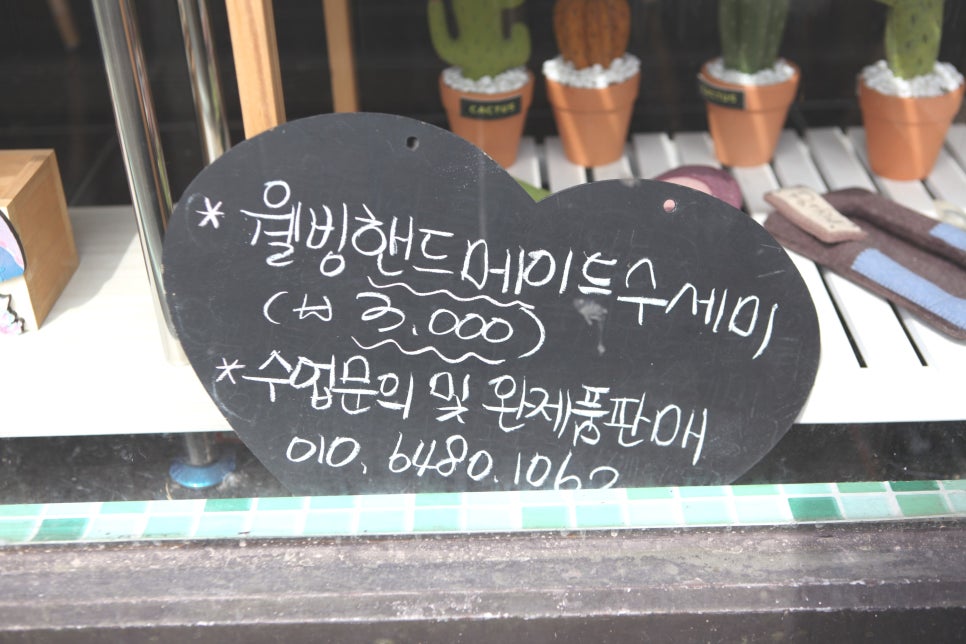 CACTUS
CACTUS
* 웰빙핸드메이드수세미
(₩ 3.000)
*수업문의 및 완제품판매
010. 6480. 1062